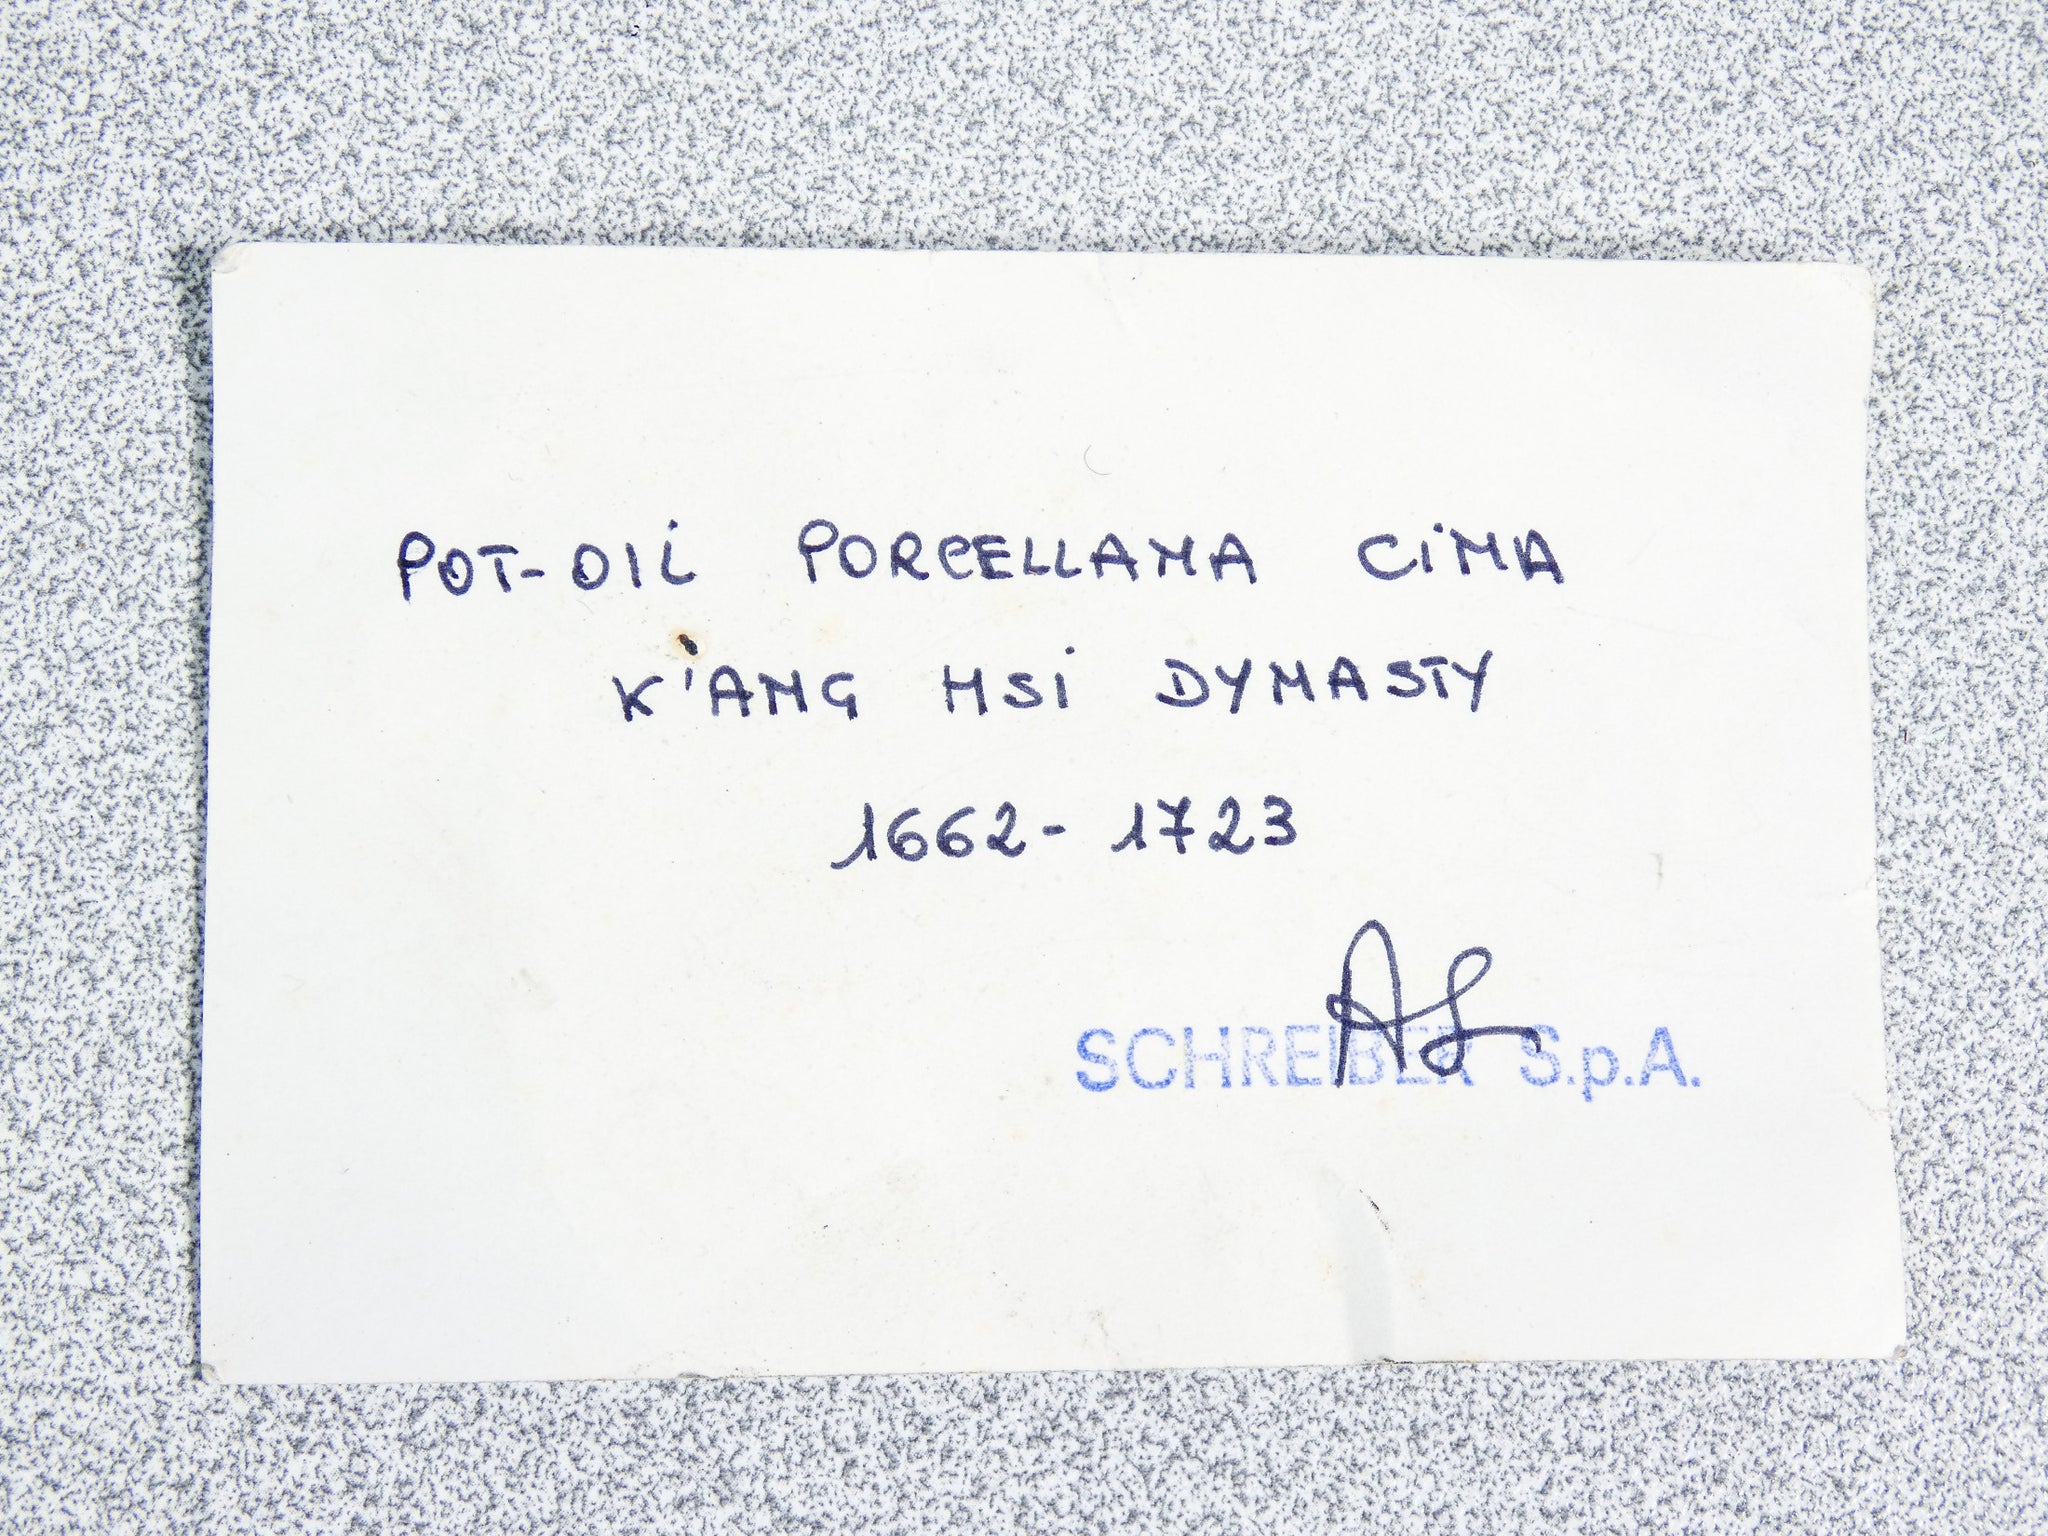 POT-OIL PORCELLANA CINA
K'ANG HSI DYNASTY
1662-1723
SCHREIBER S.p.A.